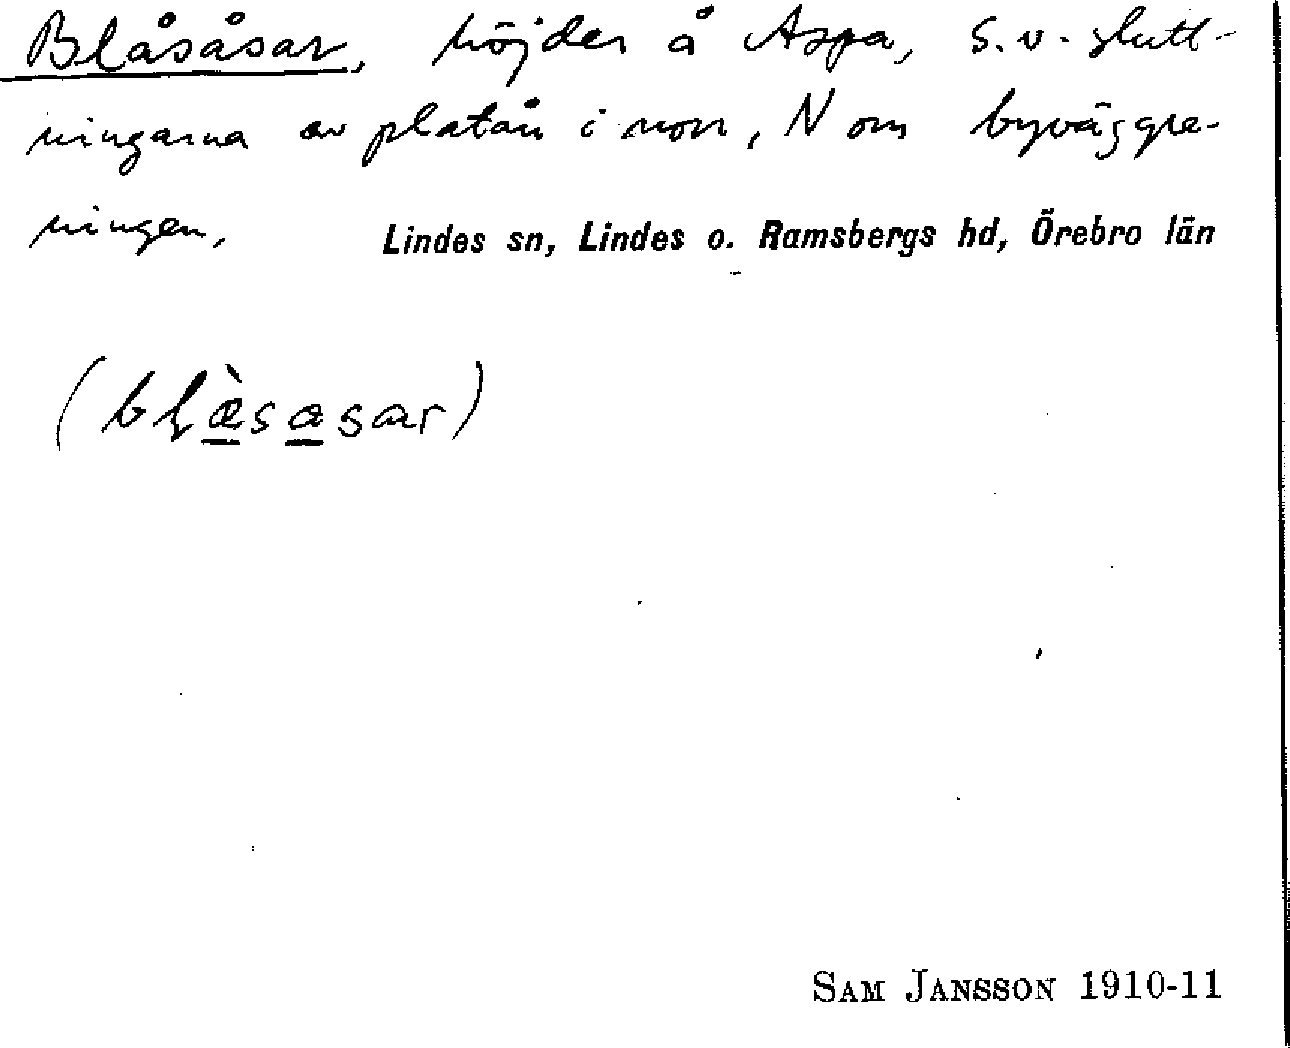 Blåsåsar, höjder å Aspa, s.v. slutt-
ningarna av platån i norr, N om byväggre-
ningen,
Lindes sn, Lindes o. Ramsbergs hd, Örebro län
SAM JANSSON 1910-11